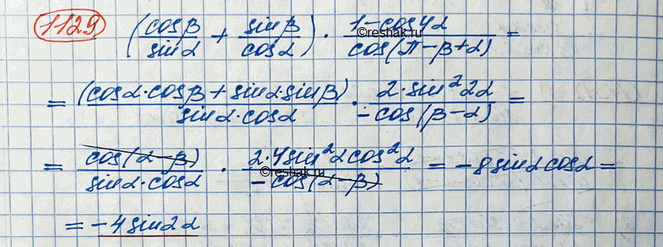 1129 (cosβ/sinα + sinβ/cosα) · (1-cos4α)/cos(π-β+α) =
= (cosα·cosβ + sinα·sinβ)/(sinα·cosα) · (2·sin²2α)/(-cos(β-α)) =
= cos(α-β)/(sinα·cosα) · (2·4sin²αcos²α)/(-cos(α-β)) = -8sinαcosα =
= -4sin2α
©reshak.ru
©reshak.ru